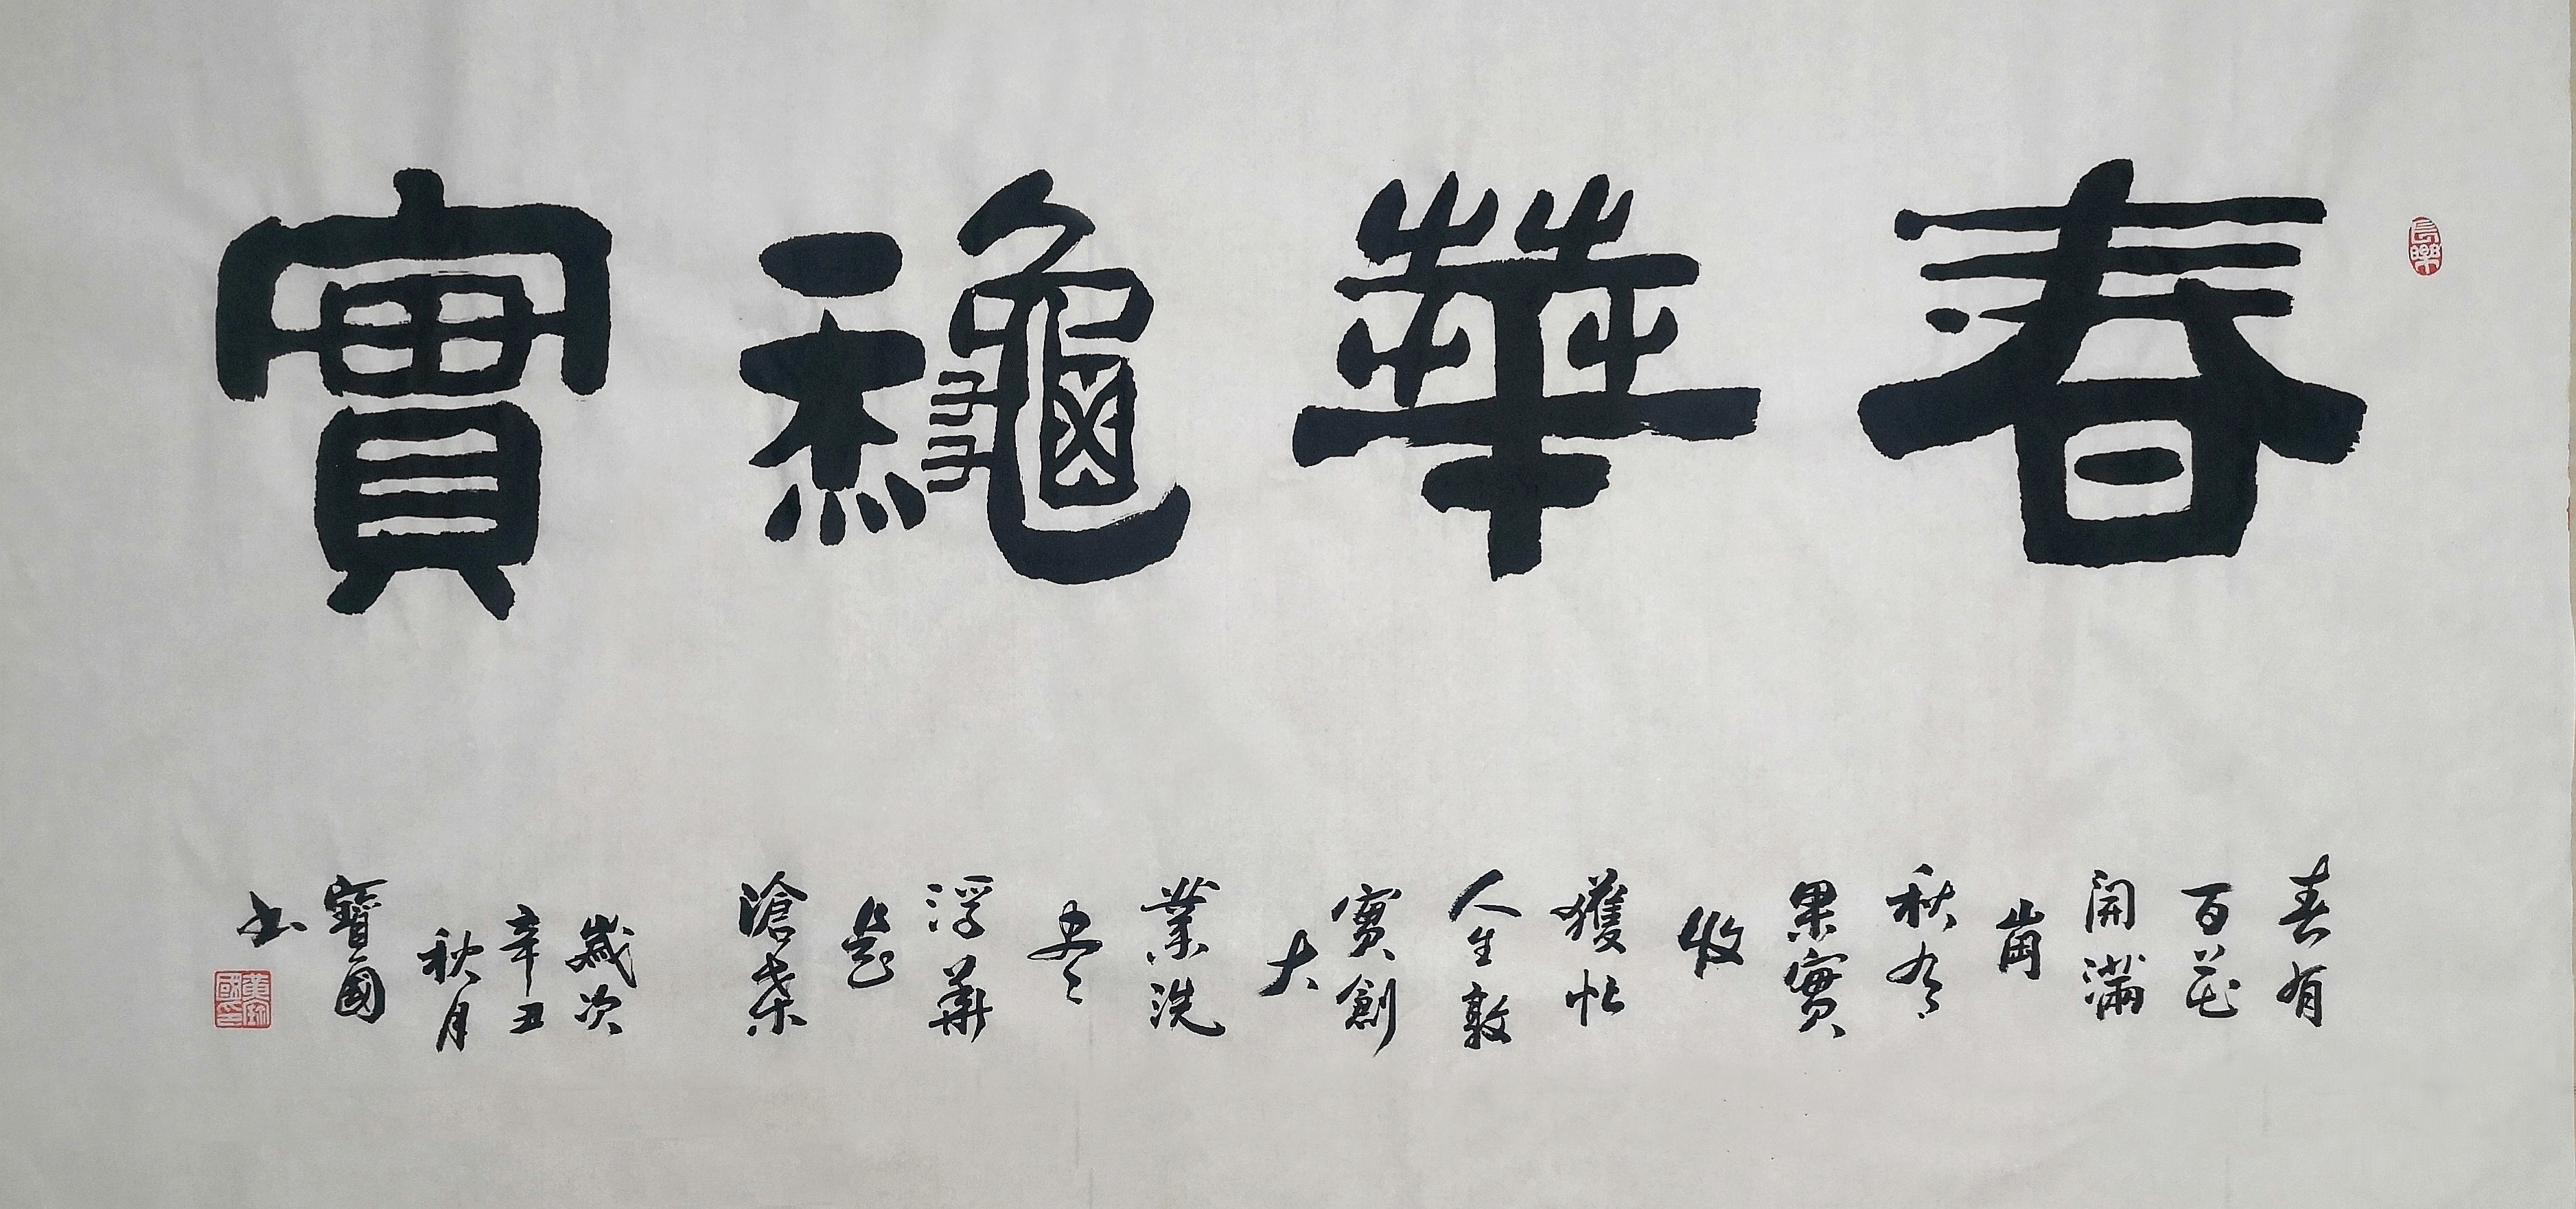 春華龝實
長樂
春有
百花
開滿
崗
秋有
果實
收
獲忙
人生敦
實創
大
業洗
尽
浮華
是
滄桑
歲次
辛丑
秋月
寶國
书